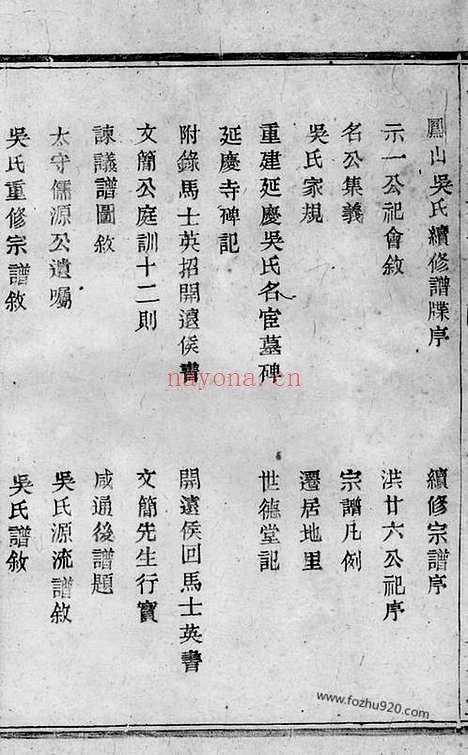 鳳山吳氏續修譜牒序
續修宗譜序
示一公祀會敘
洪廿六公祀序
名公集義
宗譜凡例
吳氏家規
遷居地里
重建延慶吳氏名宦墓碑
世德堂記
延慶寺碑記
附錄馬士英招開遠侯書
開遠侯回馬士英書
文簡公庭訓十二則
文簡先生行實
諫議譜圖敘
咸通後譜題
太守儒源公遺囑
吳氏源流譜敘
吳氏重修宗譜敘
吳氏譜敘
nayona.cn
www.fozhu920.com